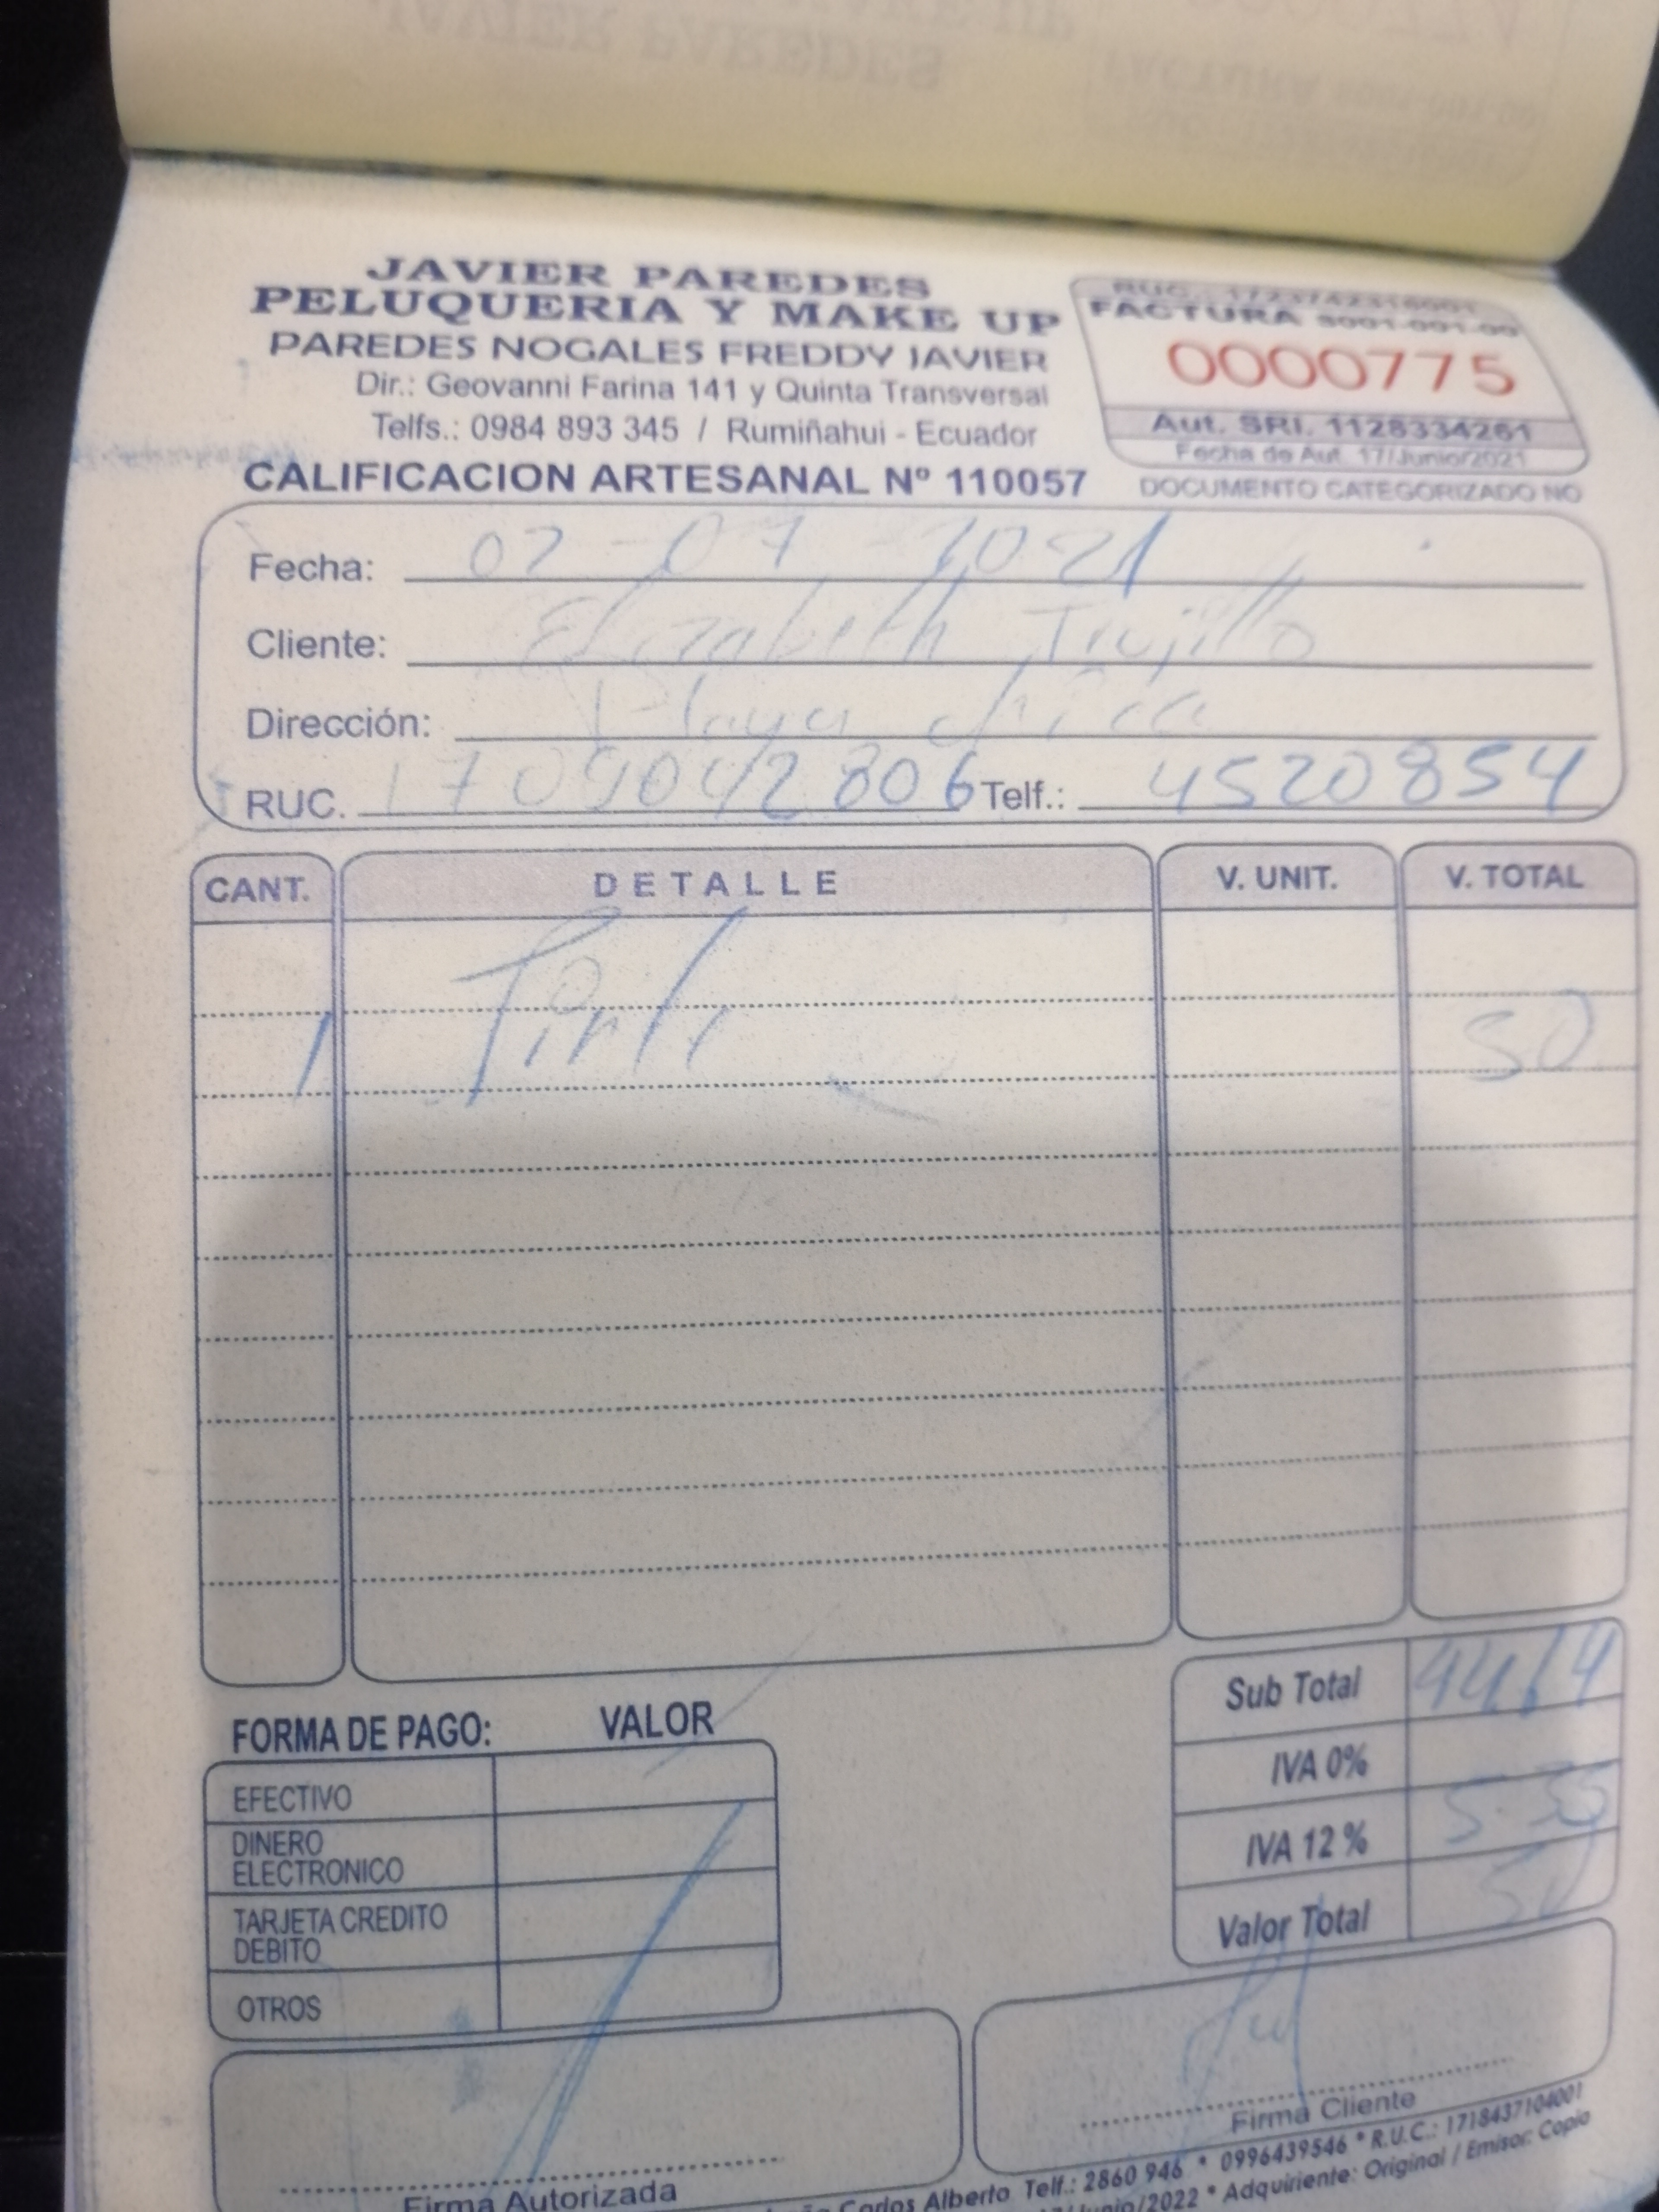 JAVIER PAREDES
PELUQUERIA Y MAKE UP
PAREDES NOGALES FREDDY JAVIER
Dir.: Geovanni Farina 141 y Quinta Transversal
Telfs.: 0984 893 345 / Rumiñahui - Ecuador
CALIFICACION ARTESANAL Nº 110057
RUC.:
FACTURA S001-001-00
0000775
Aut. SRI. 1128334261
Fecha de Aut. 17/Junio/2021
DOCUMENTO CATEGORIZADO NO
Fecha: 02-07-2021
Cliente: Elizabeth Trujillo
Dirección: Playa chica
RUC. 1709042806 Telf.: 4520854
CANT. DETALLE V. UNIT. V. TOTAL
1 50
Sub Total 44,64
IVA 0%
IVA 12% 5.35
Valor Total 50
FORMA DE PAGO: VALOR
EFECTIVO
DINERO ELECTRONICO
TARJETA CREDITO DEBITO
OTROS
Firma Autorizada
Firma Cliente
Carlos Alberto Telf.: 2860 946 * 0996439546 * R.U.C.: 1718437104001
/Junio/2022 * Adquiriente: Original / Emisor: Copia